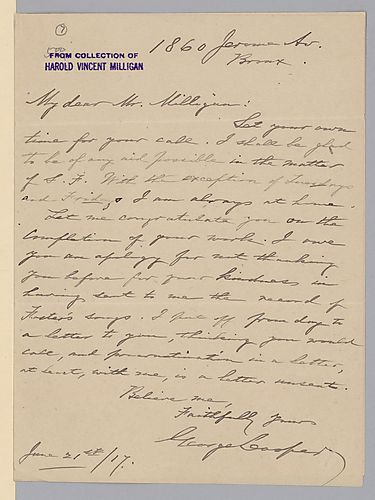 FROM COLLECTION OF
HAROLD VINCENT MILLIGAN
1860 Jerome Av.
Bronx.
My dear Mr. Milligan:
Set your own
time for your call. I shall be glad
to be of any aid possible in the matter
of S. F. With the exception of Tuesdays
and Fridays I am always at home.
Let me congratulate you on the
completion of your work. I owe
you an apology for not thanking
you before for your kindness in
having sent to me the record of
Foster's songs. I put off from day to
a letter to you, thinking you would
call, and procrastination in a letter,
at least, with me, is a letter unsent.
Believe me,
Faithfully yours
George Cooper
June 21st/17.